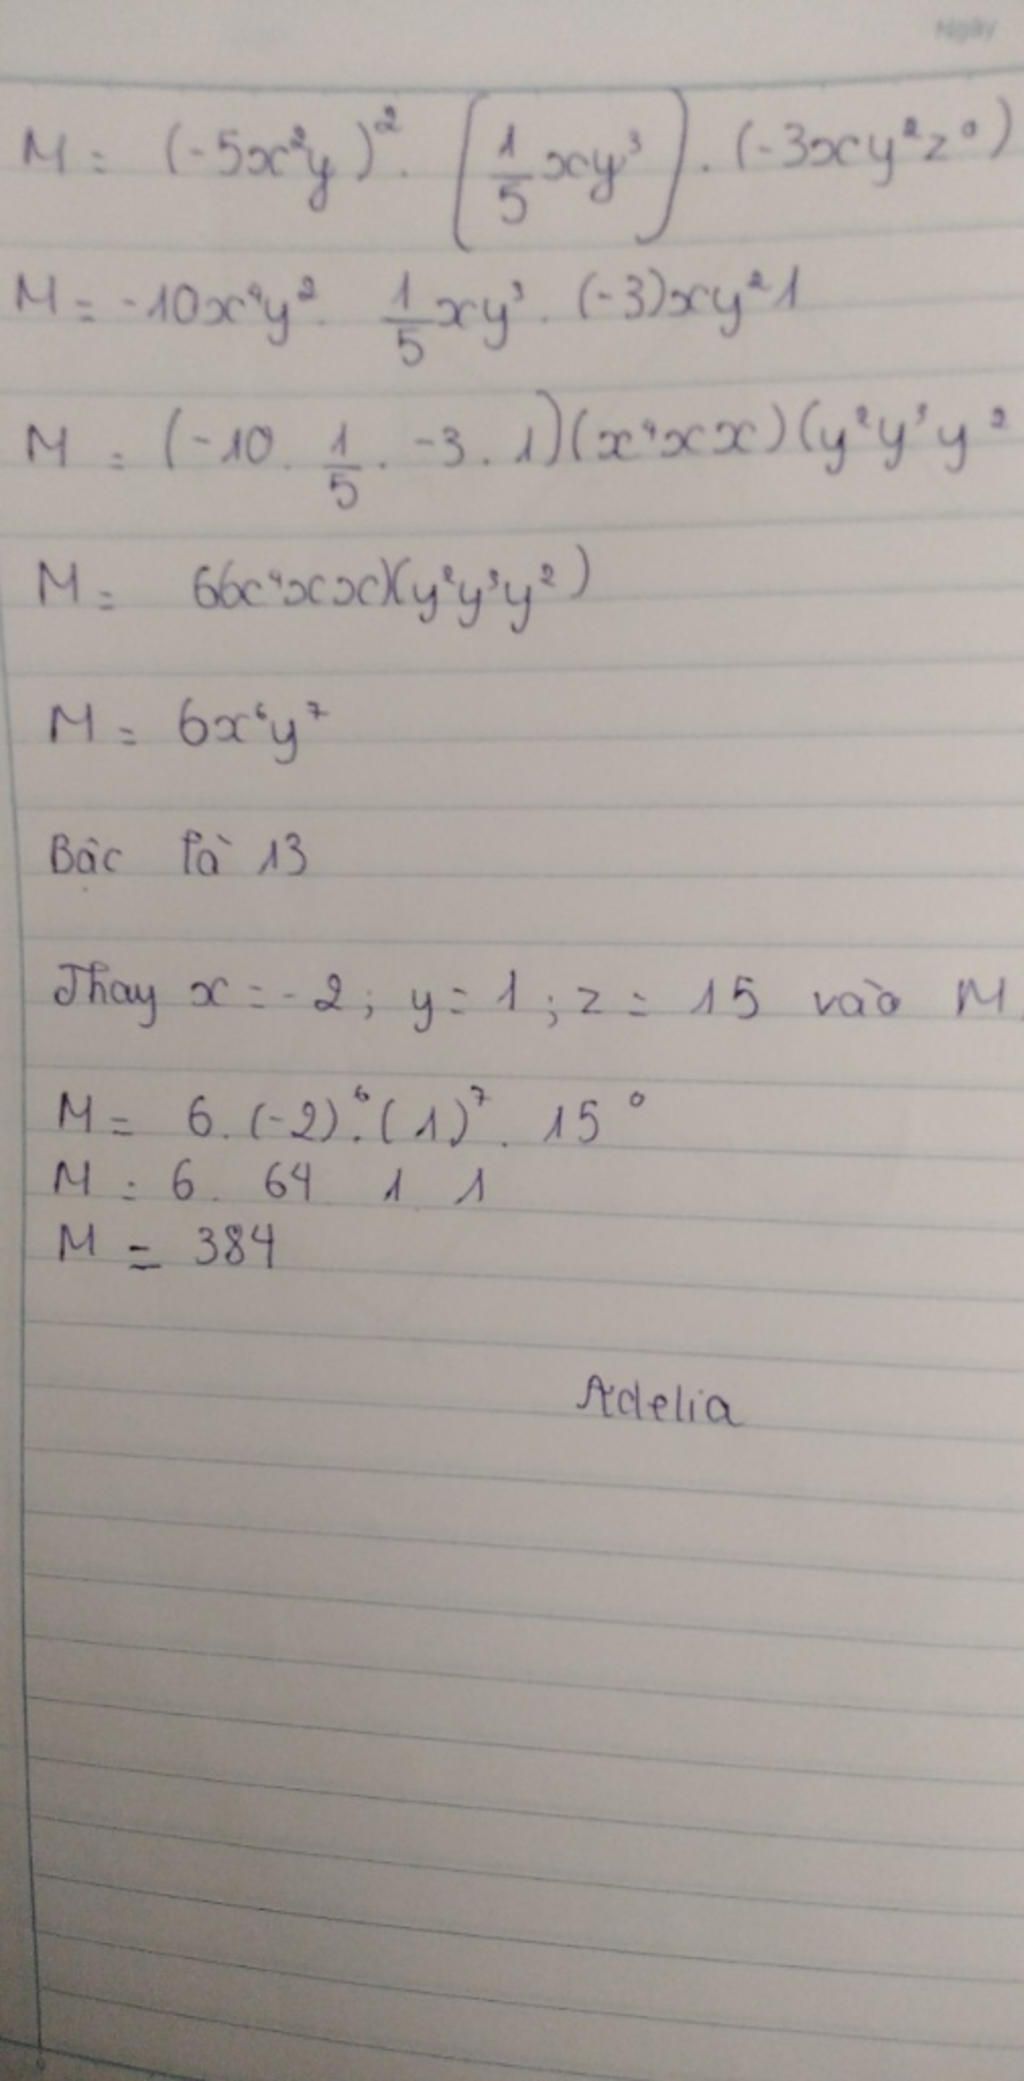 Ngày
M = (-5x²y)² . (1/5 xy³) . (-3xy²z⁰)
M = -10x⁴y² . 1/5 xy³ . (-3)xy²1
M = (-10 . 1/5 . -3 . 1)(x⁴xx)(y²y³y²
M = 66x⁴xx)(y²y³y²)
M = 6x⁶y⁷
Bậc là 13
Thay x = -2; y = 1; z = 15 vào M
M = 6.(-2)⁶.(1)⁷. 15⁰
M = 6. 64 1 1
M = 384
Adelia